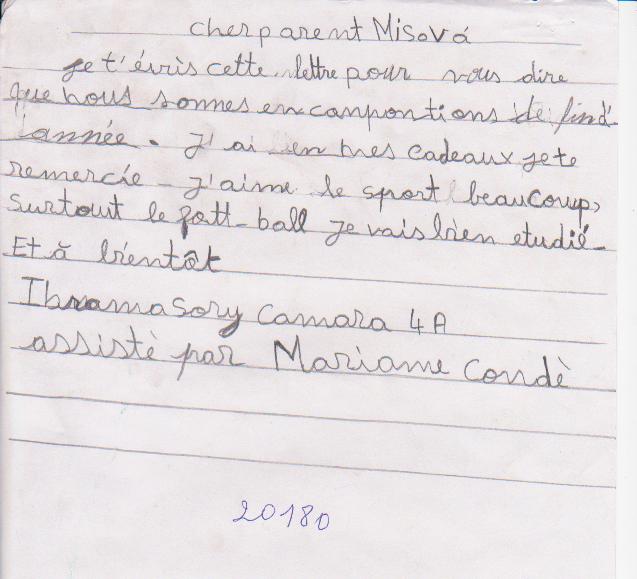 cher parent Misová
je t'évris cette lettre pour vous dire
que nous sonnes en canpontions de find'
année. J'ai en mes cadeaux je te
remercie - J'aime le sport beaucoup,
Surtout le fott-ball je vais bien etudié-
Et à bientôt
Ibramasory camara 4A
assistè par Mariame condè
20180